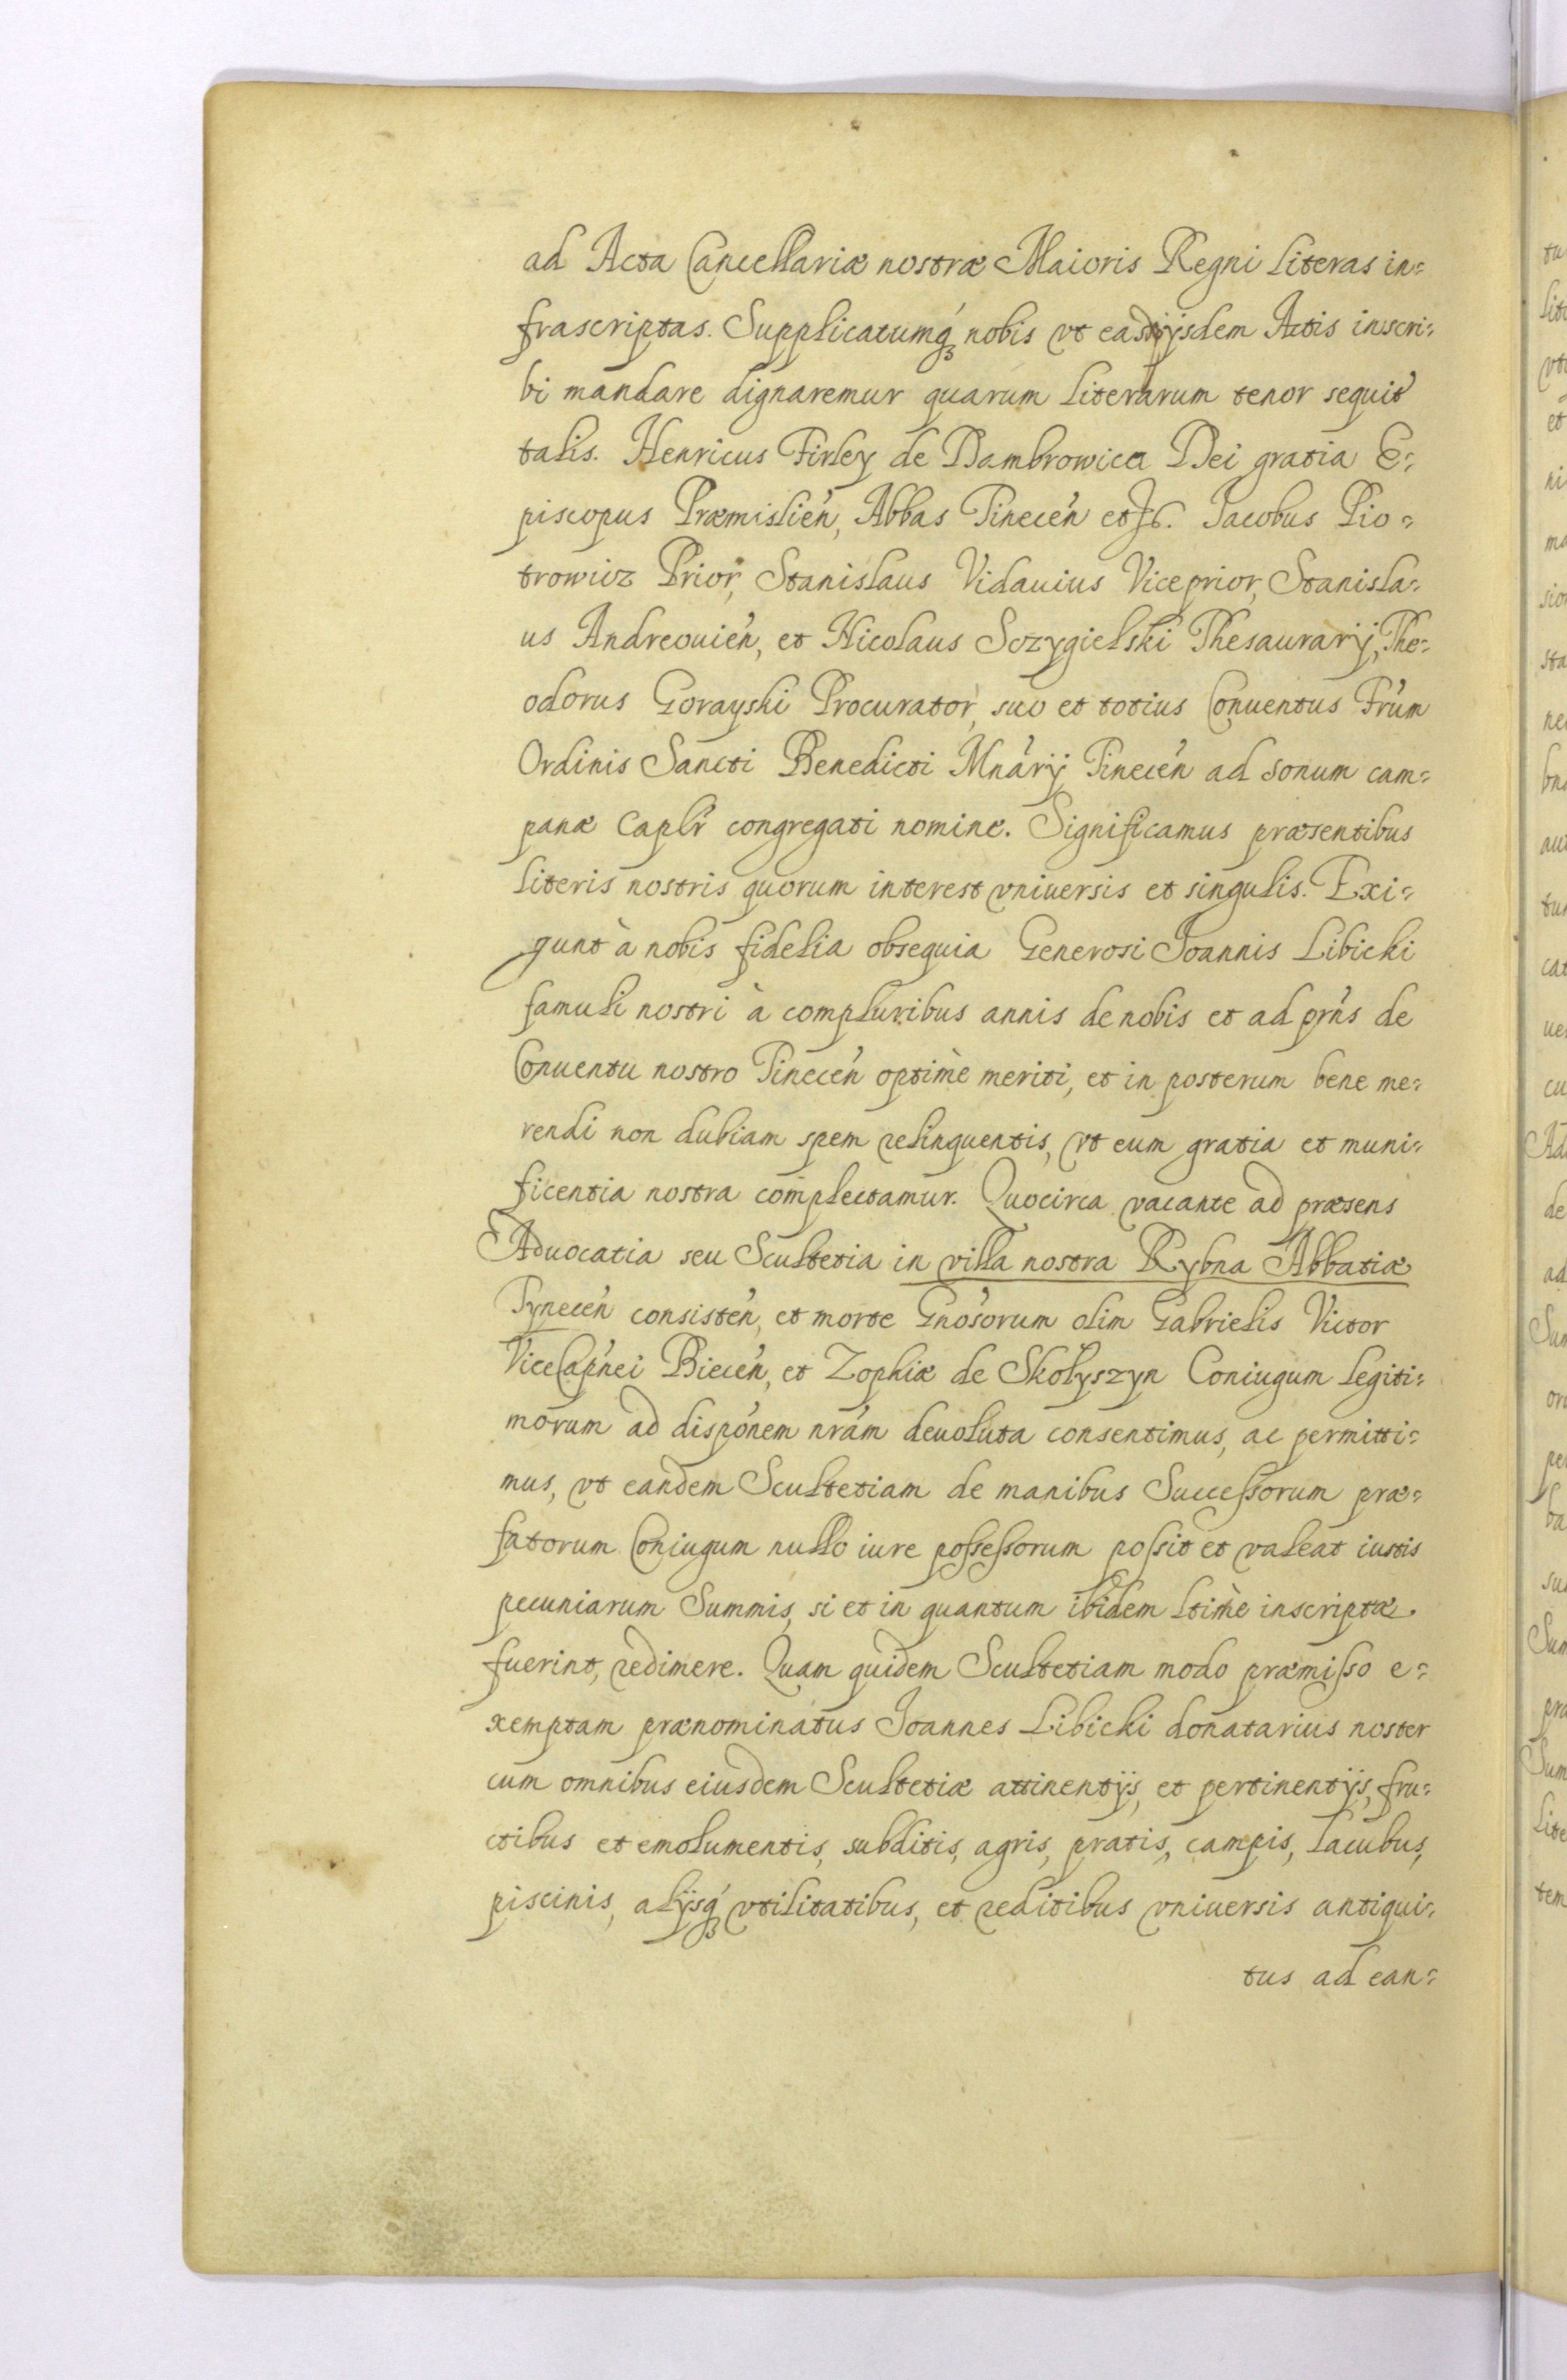 ad Acta Cancellariæ nostræ Maioris Regni Literas in=
frascriptas. Supplicatumq́ꝫ nobis vt easd ijsdem Actis inscri=
bi mandare dignaremur quarum Literarum tenor sequit'
talis. Henricus Firley de Dambrowica Dei gratia E=
piscopus Præmislień, Abbas Tineceń Jacobus Pio=
trowicz Prior, Stanislaus Vidauius Viceprior, Stanisla=
us Andreouień, et Nicolaus Sczygielski Thesaurarij, The=
odorus Gorayski Procurator, suo et totius Conuentus Fŕum
Ordinis Sancti Benedicti Mnárij Tineceń ad sonum cam=
panæ Caplŕ congregati nomine. Significamus præsentibus
Literis nostris quorum interest vniuersis et singulis. Exi=
gunt à nobis fidelia obsequia Generosi Joannis Libicki
famuli nostri à compluribus annis de nobis et ad prńs de
Conuentu nostro Tineceń optimè meriti, et in posterum bene me=
rendi non dubiam spem relinquentis, vt eum gratia et muni=
ficentia nostra complectamur. Quocirca vacante ad præsens
Aduocatia seu Scultetia in villa nostra Rybna Abbatiæ
Tyneceń consisteń, et morte Gnósorum olim Gabrielis Victor
ViceCapńei Bieceń, et Zophiæ de Skołyszyn Coniugum legiti=
morum ad dispónem nrám deuoluta consentimus, ac permitti=
mus, vt eandem Scultetiam de manibus Successorum præ=
fatorum Coniugum nullo iure possessorum possit et valeat iustis
pecuniarum Summis, si et in quantum ibidem ltimè inscriptæ
fuerint, redimere. Quam quidem Scultetiam modo præmisso e=
xemptam prænominatus Joannes Libicki donatarius noster
cum omnibus eiusdem Scultetiæ attinentijs, et pertinentijs, fru=
ctibus et emolumentis, subditis, agris, pratis, campis, lacubus,
piscinis, alijsq́ꝫ vtilitatibus, et reditibus vniuersis antiqui=
tus ad ean=